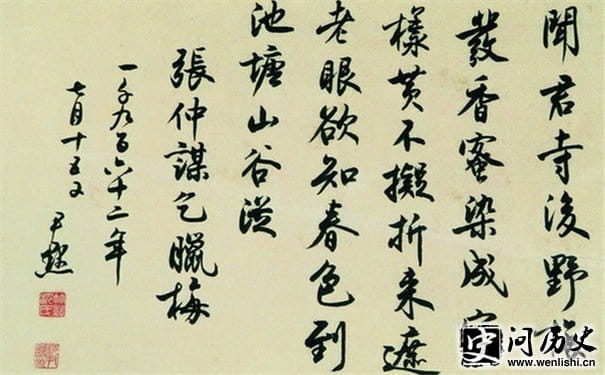 聞君寺後野梅
發香蜜染成宮
樣黄不擬折来遮
老眼欲知春色到
池塘山谷從
張仲謀乞臘梅
一千九百六十二年
七月十五日 尹默
问历史
www.wenlishi.cn